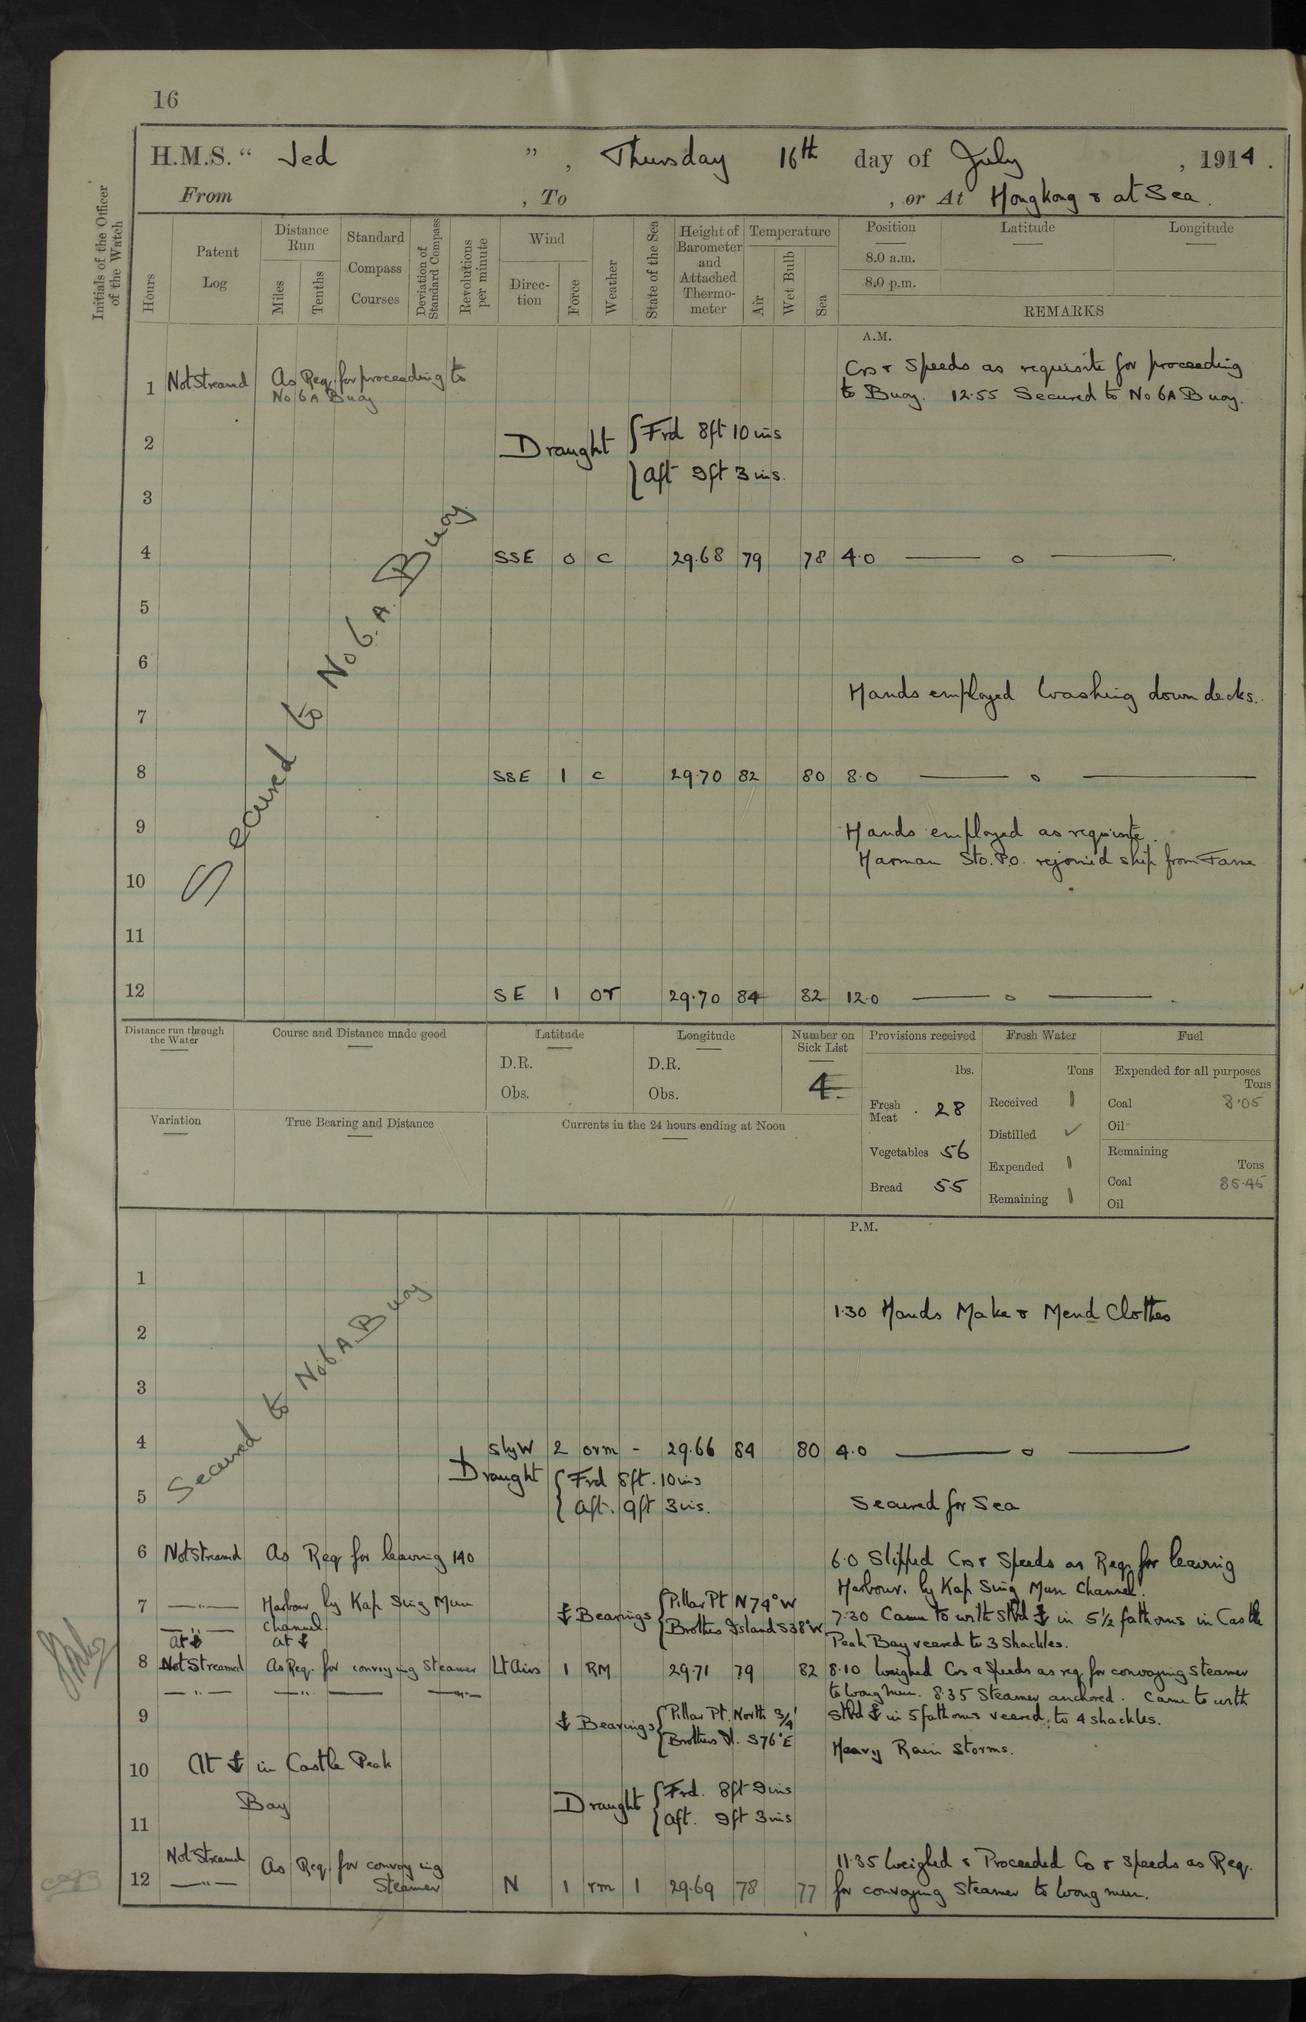 16
H.M.S. “ Jed ” , Thursday 16th day of July , 1914 .
From , To , or At Hongkong & at Sea.
Initials of the Officer of the Watch
Hours
Patent Log
Distance Run
Miles
Tenths
Standard Compass Courses
Deviation of Standard Compass
Revolutions per minute
Wind
Direction
Force
Weather
State of the Sea
Height of Barometer and Attached Thermometer
Temperature
Air
Wet Bulb
Sea
Position
Latitude
Longitude
8.0 a.m.
8.0 p.m.
REMARKS
A.M.
1 Not Streamd As Req. for proceeding to
No 6A Buoy
Crs & Speeds as requisite for proceeding
to Buoy. 12.55 Secured to No 6A Buoy.
2 Draught { Frd 8ft 10ins
3 Aft 9ft 3ins.
Secured to No 6.A. Buoy
4 SSE 0 c 29.68 79 78 4.0 —— o ——
5
6
Hands employed Washing down decks.
7
8 SSE 1 c 29.70 82 80 8.0 —— o ——
9 Hands employed as requisite.
Harman Sto. P.O. rejoined ship from Fame
10
11
12 SE 1 or 29.70 84 82 12.0 —— o —— .
Distance run through the Water
Course and Distance made good
Latitude
D.R.
Obs.
Longitude
D.R.
Obs.
Number on Sick List
4
Provisions received
lbs.
Fresh Meat . 28
Vegetables 56
Bread 55
Fresh Water
Tons
Received
Distilled ✓
Expended
Remaining
Fuel
Expended for all purposes
Tons
Coal 8.05
Oil
Remaining
Tons
Coal 85.45
Oil
Variation
True Bearing and Distance
Currents in the 24 hours ending at Noon
P.M.
1
1.30 Hands Make & Mend Clothes
2
3
Secured to No 6.A. Buoy
4 SlyW 2 orm - 29.66 84 80 4.0 —— o ——
Draught { Frd 8ft. 10ins
Aft. 9ft 3ins.
5 Secured for Sea
6 Not Streamd As Req for leaving 140
6.0 Slipped Crs & Speeds as Req. for leaving
Harbour. by Kap Sing Mun Channel.
7 —"— Harbour by Kap Sing Mun
—"— Channel.
⚓ Bearings { Pillar Pt N79°W
Brothers Island S38°W
7.30 Came to with Stbd ⚓ in 5½ fathoms in Castle
Peak Bay veered to 3 Shackles.
At ⚓ at ⚓
8 Not Streamed As Req. for convoying Steamer Lt Airs 1 RM 29.71 79 82
8.10 Weighed Crs & Speeds as req. for convoying Steamer
to Wongmun. 8.35 Steamer anchored. Came to with
Stbd ⚓ in 5 fathoms veered to 4 shackles.
9 ⚓ Bearings { Pillar Pt. North 3/4'
Brothers Id. S76°E
Heavy Rain Storms.
10 At ⚓ in Castle Peak
Bay
Draught { Frd. 8ft 9ins
Aft. 9ft 3ins
11
Not Streamd As Req. for convoying
Steamer
11.35 Weighed & Proceeded Co & Speeds as Req.
12 —"— N 1 rm 1 29.69 78 77 for convoying Steamer to Wongmun.